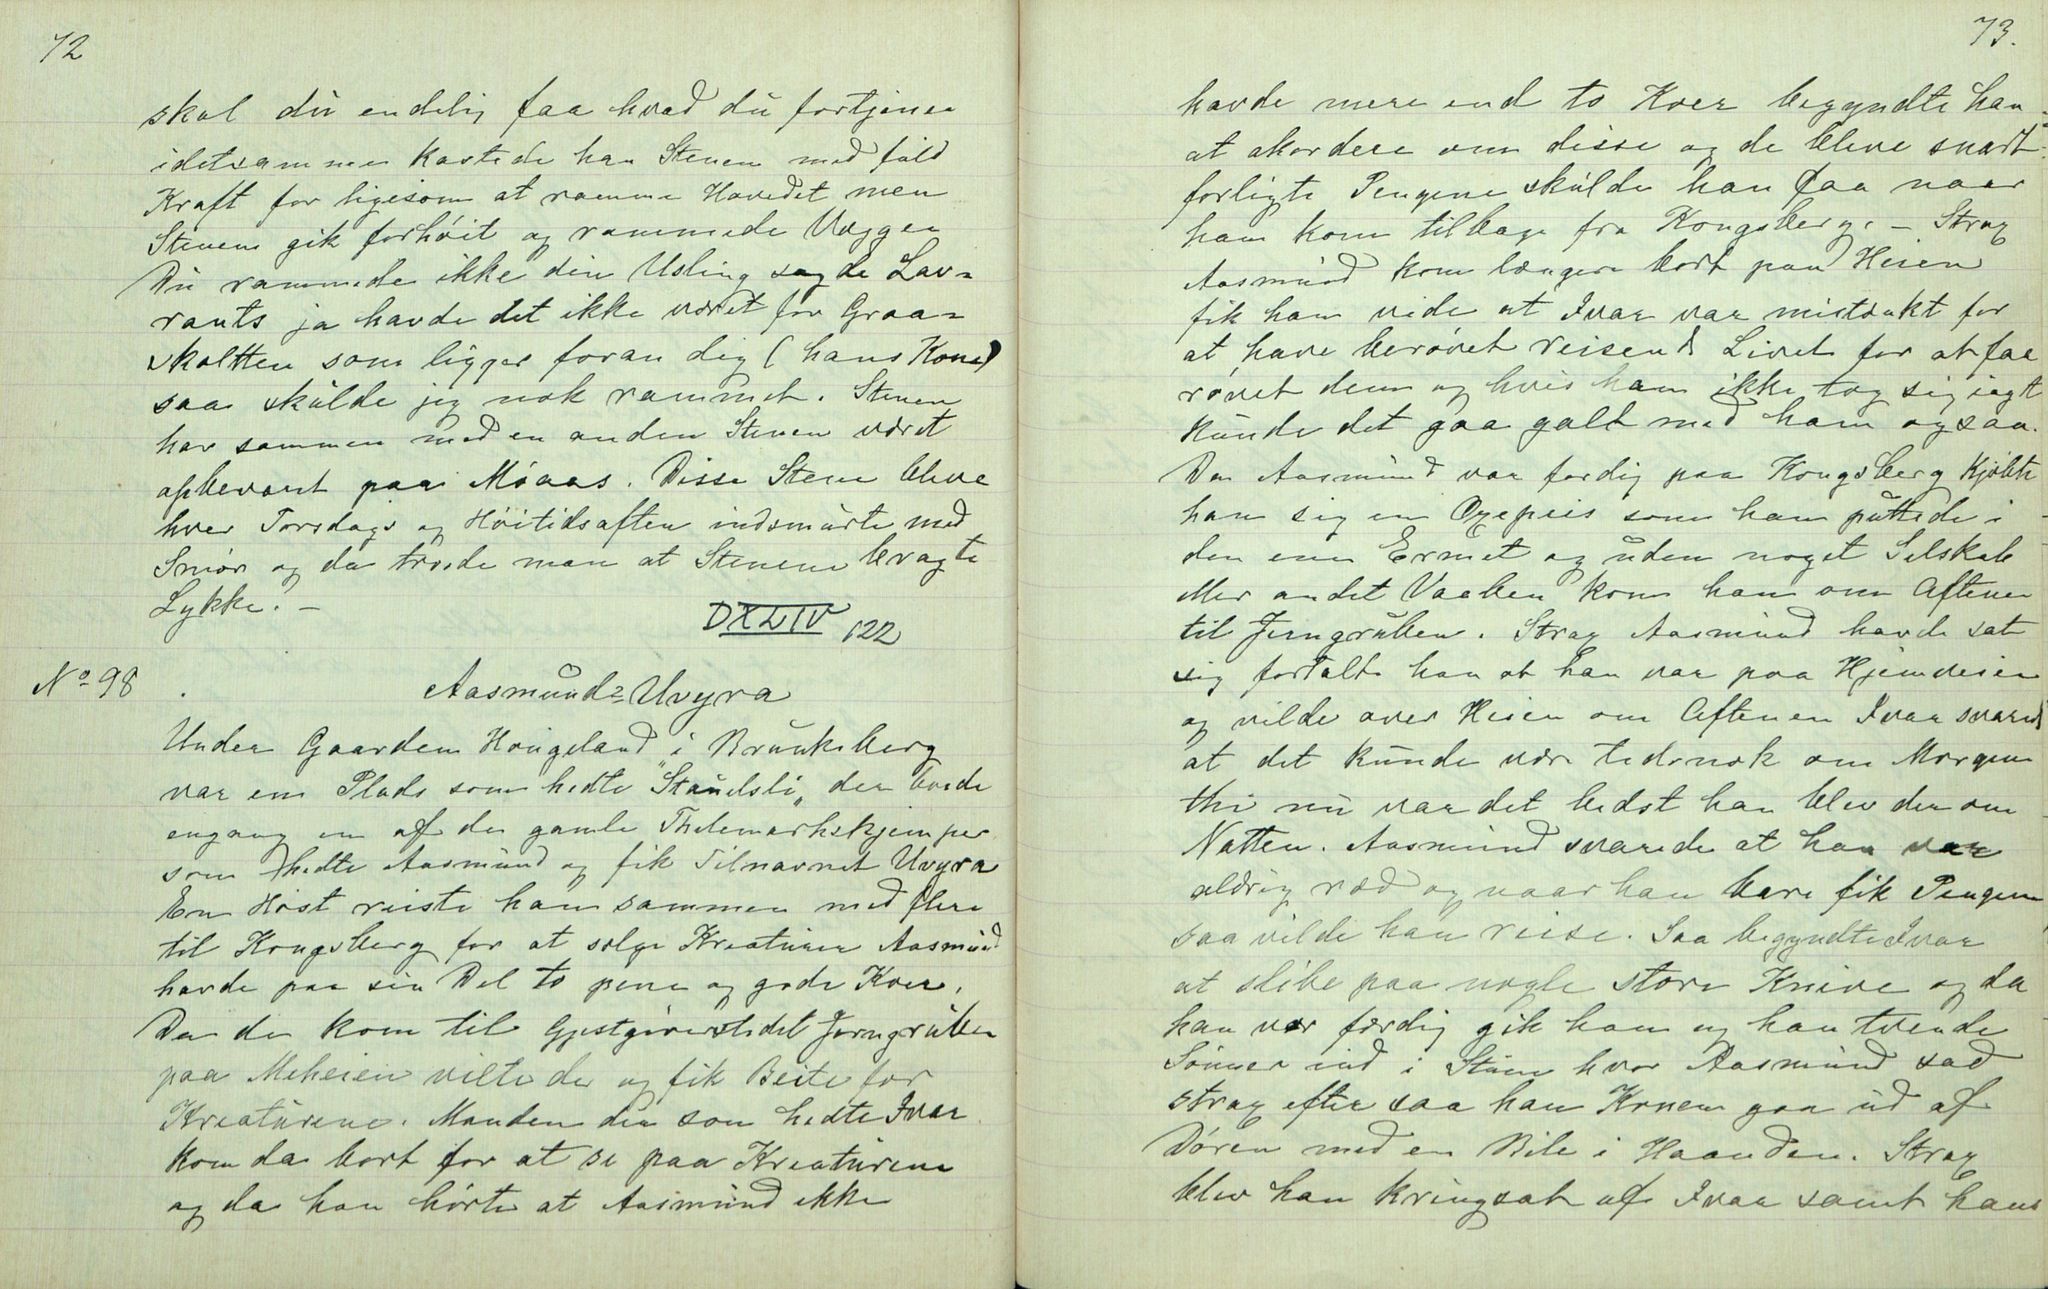 72
skal du endelig faa hvad du fortjener
idetsammen kastede han Stenen med fuld
Kraft for ligesom at ramme Hovedet men
Stenen gik forhøit og rammede Væggen
Du rammede ikke din Usling sagde Lav-
rants ja havde det ikke været for Graa-
skaltten som ligger foran dig (hans Kone)
saa skulde jeg nok rammet. Stenen
har sammen med en anden Steen været
opbevaret paa Møaas. Disse Stene bleve
hver Torsdags og Høitidsaften indsmurte med
Smør og da troede man at Stenene bragte
Lykke. –
DXLIV 122
No 98
Aasmund-Uvyra
Under Gaarden Høugeland i Brunkeberg
var en Plads som hedte "Staulsli" der boede
engang en af de gamle Thelemarkskjemper
som hedte Aasmund og fik Tilnavnet Uvyra
En Høst reiste han sammen med flere
til Kongsberg for at sælge Kreaturer Aasmund
havde paa sin Del to pene og gode Køer.
Da de kom til Gjestgiverstedet Jerngruben
paa Meheien vilte de og fik Beite for
Kreaturene. Manden der som hedte Ivar
kom da bort for at se paa Kreaturene
og da han hørte at Aasmund ikke
73.
havde mere end to Køer begyndte han
at akordere om disse og de bleve snart
forligte Pengene skulde han faa naar
han kom tilbage fra Kongsberg. – Strax
Aasmund kom længere bort paa Heien
fik han vide at Ivar var mistænkt for
at have berøvet reisende Livet for at faa
røvet dem og hvis han ikke tog sig iagt
kunde det gaa galt med ham ogsaa.
Da Aasmund var færdig paa Kongsberg kjøbte
han sig en Oxepeis som han puttede i
den ene Ermet og uden noget Selskab
eller andet Vaaben kom han om Aftenen
til Jerngruben. Strax Aasmund havde sat
sig fortalte han at han var paa Hjemveien
og vilde over Heien om Aftenen Ivar svarede
at det kunde være tidsnok om Morgenen
thi nu var det bedst han blev der om
Natten. Aasmund svarede at han var
aldrig ræd og naar han bare fik Pengene
saa vilde han reise. Saa begyndte Ivar
at slibe paa nogle store Knive og da
han var færdig gik han og han tvende
Sønner ind i Stuen hvor Aasmund sad
strax efter saa han Konen gaa ud af
Døren med en Bile i Haanden. Strax
blev han kringsat af Ivar samt hans